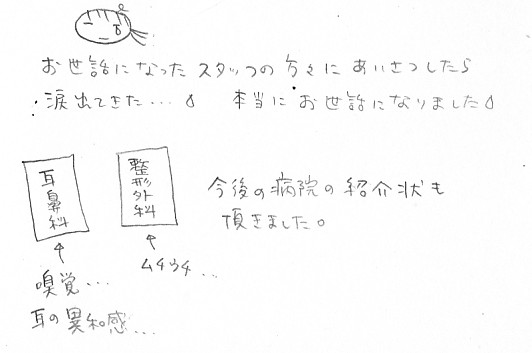 お世話になったスタッフの方々にあいさつしたら
涙出てきた…。本当にお世話になりました。
耳鼻科
整形外科
今後の病院の紹介状も
頂きました。
ムチウチ…
嗅覚…
耳の異和感…